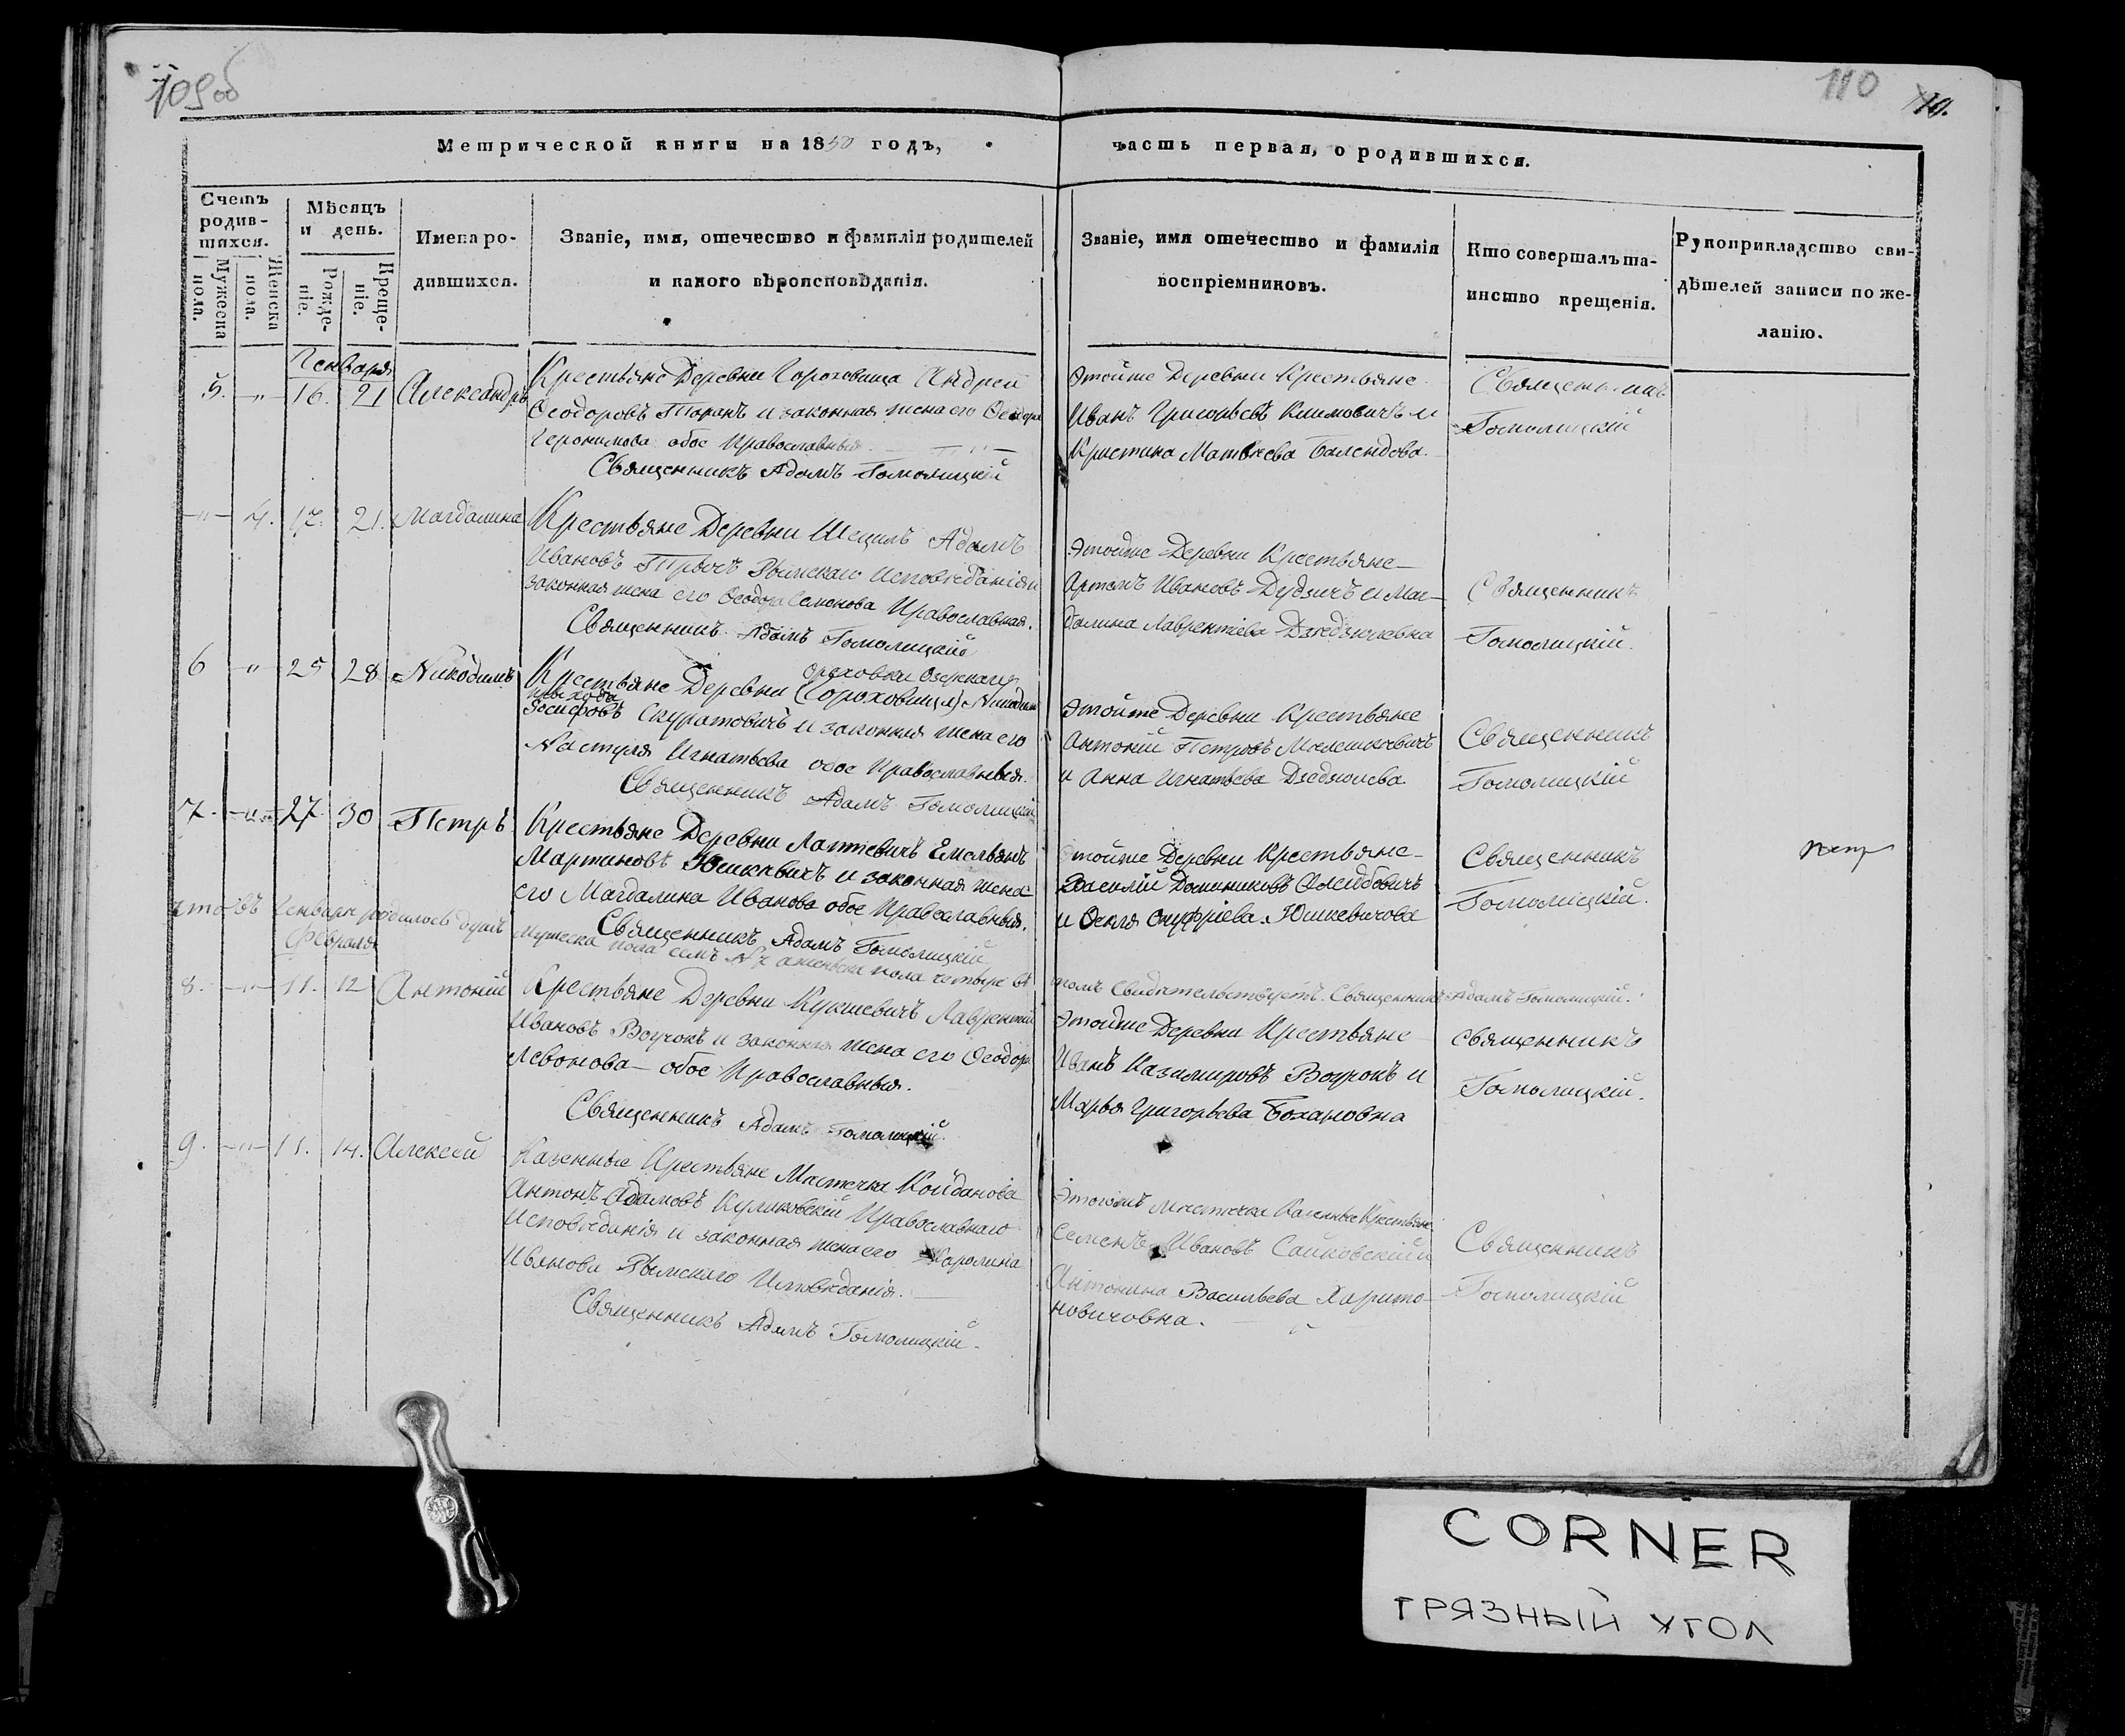 109об
110
110.
Метрической книги на 1850 годъ,
часть первая, о родившихся.
Счетъ родив-
шихся.
Мужеска пола.
Женска пола.
Мѣсяцъ и день.
Рожде-
ніе.
Креще-
ніе.
Имена ро-
дившихся.
Званіе, имя, отечество и фамилія родителей
и какого вѣроисповѣданія.
Званіе, имя отечество и фамилія
воспріемниковъ.
Кто совершалъ та-
инство крещенія.
Рукоприкладство сви-
дѣтелей записи по же-
ланію.
Генваря
5. -"- 16. 21 Александръ
Крестьяне Деревни Гороховища Андрей
Ѳеодоровъ Таранъ и законная жена его Ѳеодора
Геронимова обое Православныя
Священникъ Адамъ Гомолицкій
Этойже Деревни Крестьяне
Иванъ Григорьевъ Климовичъ и
Кристина Матвѣева Балендова
Священникъ
Гомолицкій
-"- 4. 17. 21. Магдалина
Крестьяне Деревни Шецилъ Адамъ
Ивановъ Римскаго Исповѣданія и
законная жена его Ѳеодора Семенова Православная.
Священникъ Адамъ Гомолицкій
Этойже Деревни Крестьяне
Артемъ Ивановъ Дудзичъ и Маг-
далина Лаврентіева
Священникъ
Гомолицкій.
6 -"- 25 28 Никодимъ
Ореховки Озернаго
Крестьяне Деревни (Гороховища) Никодимъ
прихода
Іосифовъ Скуратовичъ и законная жена его
Настуля Игнатьева обое Православныя.
Священникъ Адамъ Гомолицкій
Этойже Деревни Крестьяне
Антоній Петровъ Мелешкевичъ
и Анна Игнатьева Дзедзюлева
Священникъ
Гомолицкій
7. -"- 27 30 Петръ
Крестьяне Деревни Лаптевичъ Емельянъ
Мартиновъ Юшкевичъ и законная жена
его Магдалина Иванова обое Православныя.
Священникъ Адамъ Гомолицкій
Этойже Деревни Крестьяне
Василій Доминиковъ
и Ѳекля Онуфріева Юшкевичова
Священникъ
Гомолицкій.
что въ Генварѣ родилось душъ Мужеска пола семъ № 7 а женска пола четыре въ
томъ Свидѣтельствуетъ Священникъ Адамъ Гомолицкій.
Февраля
8. -"- 11. 12 Антоній
Крестьяне Деревни Кукшевичъ Лаврентій
Ивановъ Воучокъ и законная жена его Ѳеодора
Левонова обое Православныя.
Священникъ Адамъ Гомолицкій.
Этойже Деревни Крестьяне
Иванъ Казимировъ Воучокъ и
Марья Григорьева Бохановна
Священникъ
Гомолицкій.
9. -"- 11. 14. Алексей
Казенные Крестьяне Мѣстечка Койданова
Антонъ Адамовъ Куликовскій Православнаго
Исповѣданія и законная жена его Каролина
Иванова Римскаго Исповѣданія.
Священникъ Адамъ Гомолицкій.
Этогожъ Мѣстечка Казенные Крестьяне
Семенъ Ивановъ Сайковскій и
Антонина Васильева Харито-
новичовна.
Священникъ
Гомолицкій
CORNER
ГРЯЗНЫЙ УГОЛ